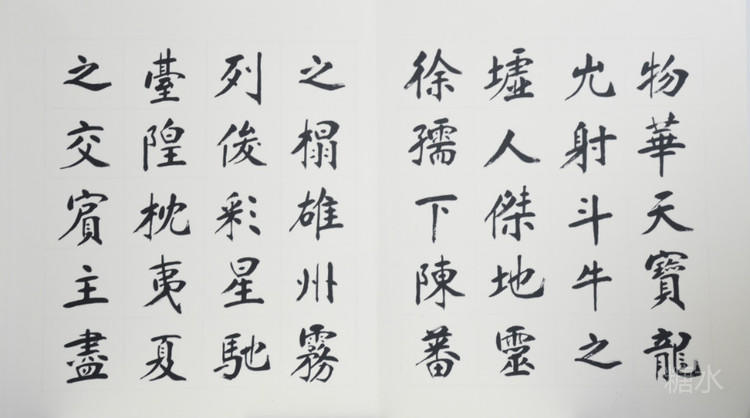 物華天寶龍
光射斗牛之
墟人傑地靈
徐孺下陳蕃
之榻雄州霧
列俊彩星馳
臺隍枕夷夏
之交賓主盡
糖水